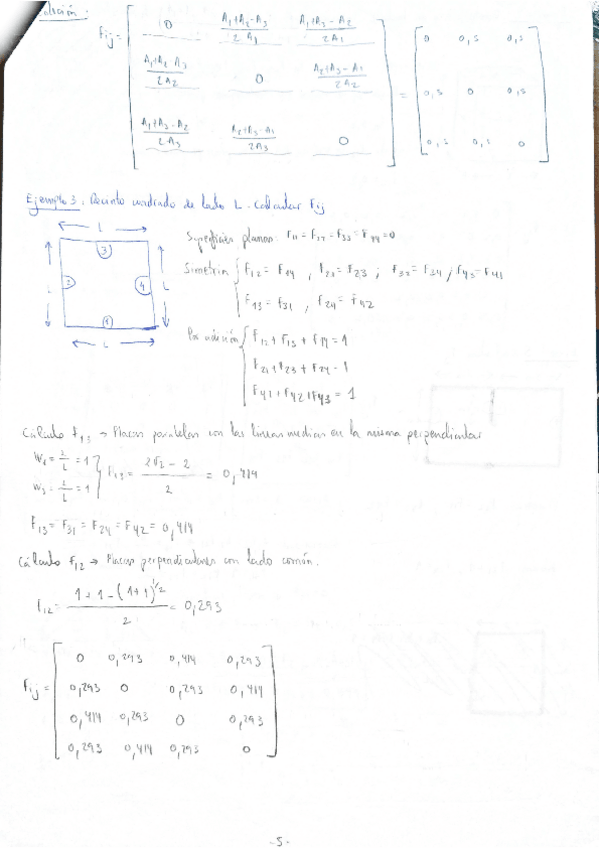 Solución:
Fij = [ 0 (A1+A2-A3)/(2A1) (A1+A3-A2)/(2A1) ] = [ 0 0,5 0,5 ]
[ (A1+A2-A3)/(2A2) 0 (A2+A3-A1)/(2A2) ] [ 0,5 0 0,5 ]
[ (A1+A3-A2)/(2A3) (A2+A3-A1)/(2A3) 0 ] [ 0,5 0,5 0 ]
Ejemplo 3. Recinto cuadrado de lado L. Calcular Fij
L
3
2
4
L
L
1
L
Superficies planas: F11 = F22 = F33 = F44 = 0
Simetría { F12 = F14 , F21 = F23 ; F32 = F34 ; F43 = F41
F13 = F31 , F24 = F42
Por adición { F12 + F13 + F14 = 1
F21 + F23 + F24 = 1
F41 + F42 + F43 = 1
Cálculo F13 → Placas paralelas con las líneas medias en la misma perpendicular
W1 = L/L = 1
W3 = L/L = 1 } F13 = (2√2 - 2)/2 = 0,414
F13 = F31 = F24 = F42 = 0,414
Cálculo F12 → Placas perpendiculares con lado común.
F12 = (1 + 1 - (1+1)^1/2)/2 = 0,293
Fij = [ 0 0,293 0,414 0,293 ]
[ 0,293 0 0,293 0,414 ]
[ 0,414 0,293 0 0,293 ]
[ 0,293 0,414 0,293 0 ]
-5-